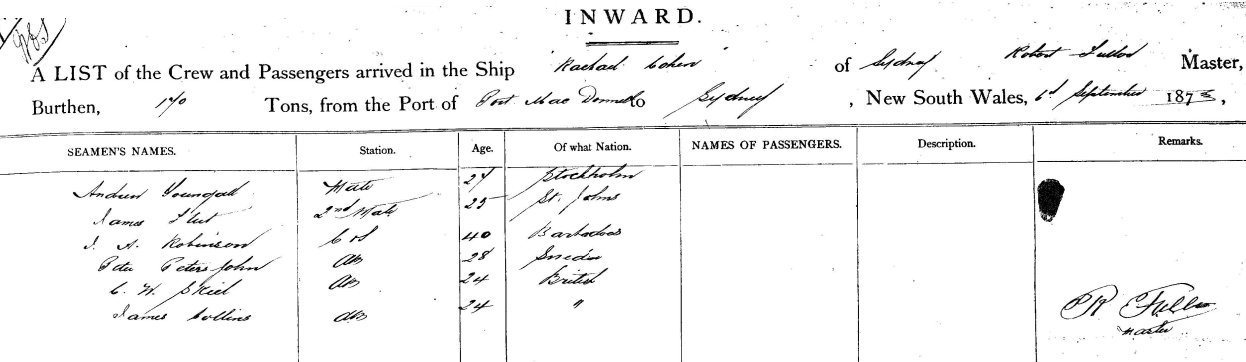 INWARD.
A LIST of the Crew and Passengers arrived in the Ship "Rachael Cohen" of Sydney Robert Master,
Burthen, 170 Tons, from the Port of Port Mac Donnell to Sydney, New South Wales, 6th September 1873,
SEAMEN'S NAMES. Station. Age. Of what Nation. NAMES OF PASSENGERS. Description. Remarks.
Andrew Mate 27 Stockholm
James 2nd Mate 25 St. Johns
J. A. Robinson 40 Barbadoes
Peter Peters John AB 28 Sweden
C. W. Skiel AB 24 British
James Collins AB 24 "
R
Master